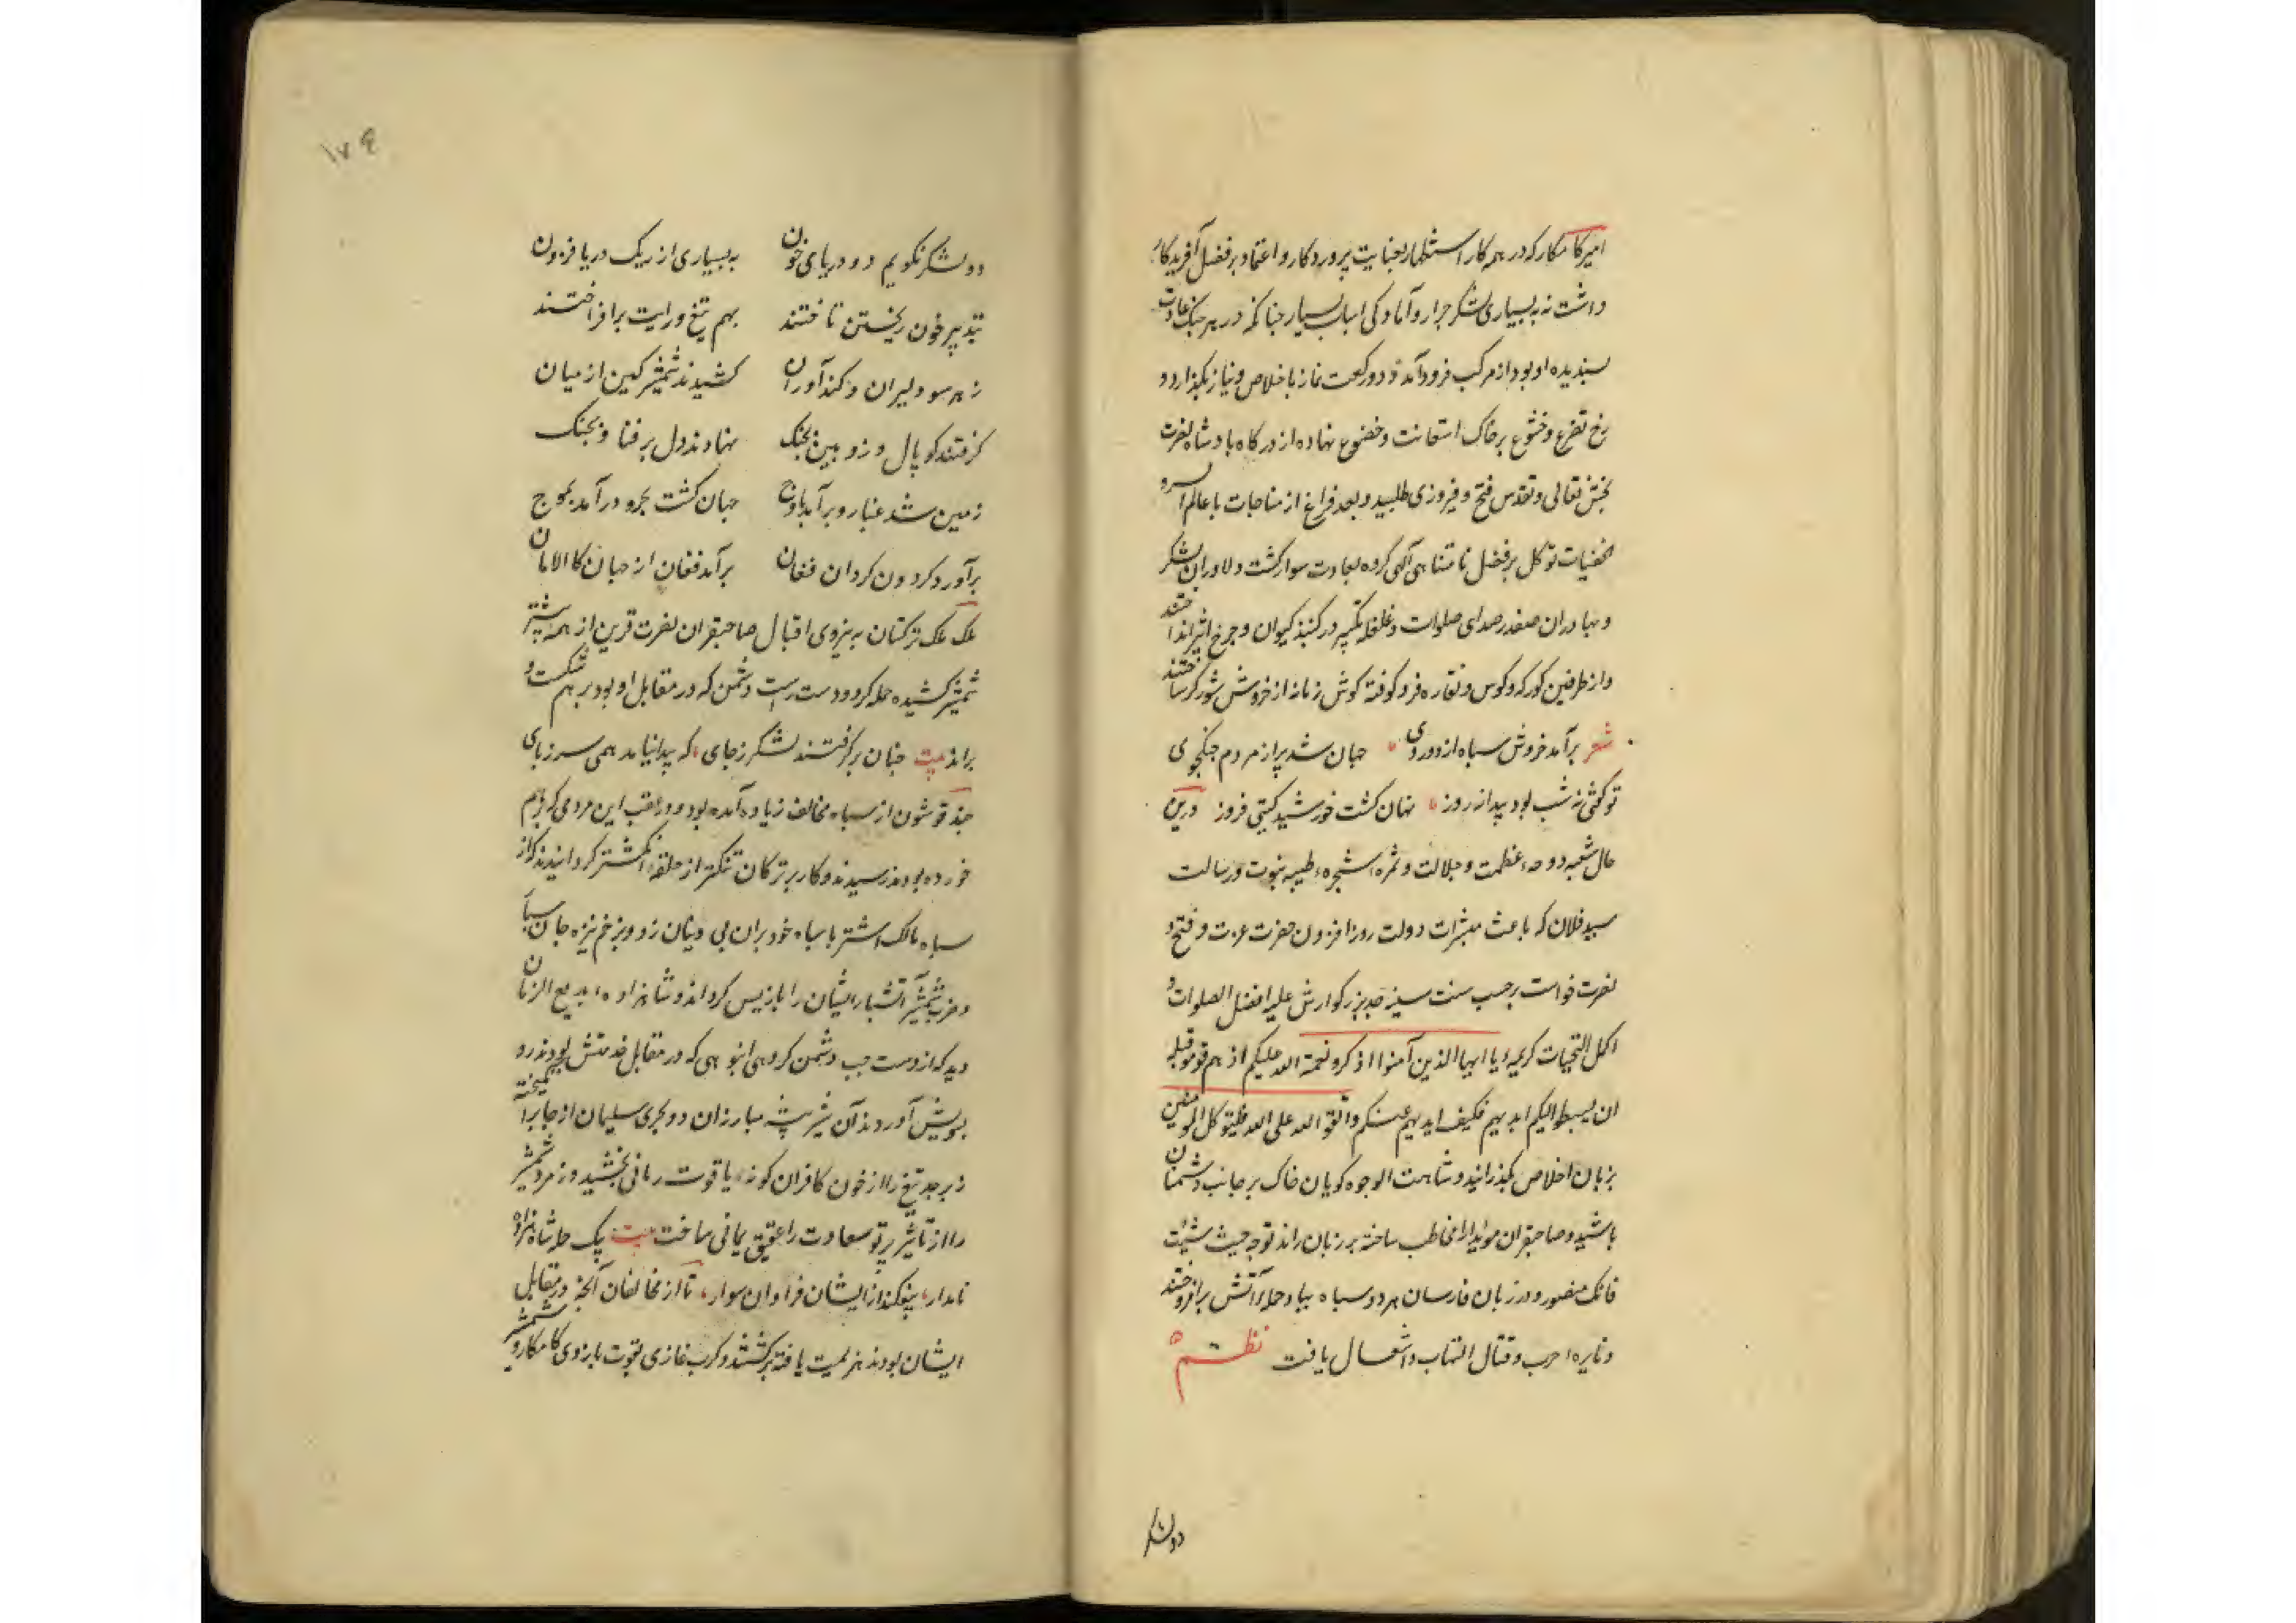 امیر کامکار که در همه کار استظهار بعنایت پروردکار و اعتماد بر فضل آفریدکار
داشت نه به بسیاری لشکر جرار و آمادکی اسباب بسیار چنانکه در هر جنک عادت
پسندیده او بود از مرکب فرود آمد و دو رکعت نماز باخلاص و نیاز بکذارد و
رخ تضرع و خشوع بر خاک استعانت و خضوع نهاده از درکاه بادشاه نصرت
بخش تعالی و تقدس فتح و فیروزی طلبید و بعد فراغ از مناجات با عالم السر و
الخفیات توکل بر فضل نامتناهی آلهی کرده بعادت سوار کشت و دلاوران لشکر
و بهادران صفدر صدای صلوات و غلغله تکبیر در کنبذ کیوان و چرخ اثیر انداختند
و از طرفین کورکه و کوس و نقاره فرو کوفته کوش زمانه از خروش شور کر ساختند
شعر برآمد خروش سپاه از دو روی جهان شد پر از مردم جنکجوی
تو کفتی نه شب بود پیدا نه روز نهان کشت خورشید کیتی فروز درین
حال شعبه دوحهٔ عظمت و جلالت و ثمره شجرهٔ طیبه نبوت و رسالت
سید فلان که باعث مبشرات دولت روز افزون حضرت عزت و فتح و
نصرت خواست برحسب سنت سنیه جد بزرکوارش علیه افضل الصلوات و
اکمل التحیات کریمهٔ یا ایها الذین آمنوا اذکرو نعمة الله علیکم اذ هم قوم قبله
ان یبسطوا الیکم ایدیهم فکیف ایدیهم عنکم واتقوا الله علی الله فلیتوکل المومنین
بزبان اخلاص بکذرانید و شاهت الوجوه کویان خاک بر جانب دشمنان
پاشید و صاحبقران موید را مخاطب ساخته بر زبان راند توجه حیث شئت
فانک منصور و در زبان فارسان هر دو سپاه بباد حمله آتش برافروختند
و نایرهٔ حرب و قتال التهاب و اشتعال یافت نظم
دو لشکر
۱۷۶
دو لشکر نکویم دو دریای خون به بسیاری از ریک دریا فزون
بتدبیر خون ریختن تاختند بهم تیغ و رایت برافراختند
ز هر سو دلیران و کندآوران کشیدند شمشیر کین از میان
کرفتند کوپال و زوبین بچنک نهادند دل بر فنا و بجنک
زمین شد غبار و برآمد باوج جهان کشت بحر و درآمد بموج
برآورد کردون کردان فغان برآمد فغان از جهان کالامان
علک ترکستان به نیروی اقبال صاحبقران نصرت قرین از همه پیشتر
شمشیر کشیده حمله کرد و دست راست دشمن که در مقابل او بود بر هم شکست و
براند بیت چنان برکرفتند لشکر ز جای که پیدا نیامد همی سر ز پای
چند قوشون از سپاه مخالف زیاده آمده بود و در عقب این مردمی که برهم
خورده بودند رسیدند و کار بر ترکان تنکتر از حلقه انکشتر کردانیدند که از
سپاه مالک اشتر با سپاه خود بران بی دینان زد و بزخم نیزه جان ستان
و ضرب شمشیر آتشبار ایشان را باز پس کرداند و شاهزاده بدیع الزمان
دید که از دست چپ دشمن کروهی انبوهی که در مقابل خدمتش بودند رو
بسویش آوردند آن شیر بیشه مبارزان دو بحری سلیمان از جا برانکیخته
زبرجد تیغ را از خون کافران کونهٔ یاقوت رمانی بخشید و زمرد شمشیر
را از تاثیر پرتو سعادت را عقیق یمانی ساخت بیت بیک حمله شاهزاده
نامدار بیفکند از ایشان فراوان سوار تا از مخالفان آنچه در مقابل
ایشان بودند هزیمت یافته برکشتند و کرب غازی بقوت بازوی کامکار و شمشیر